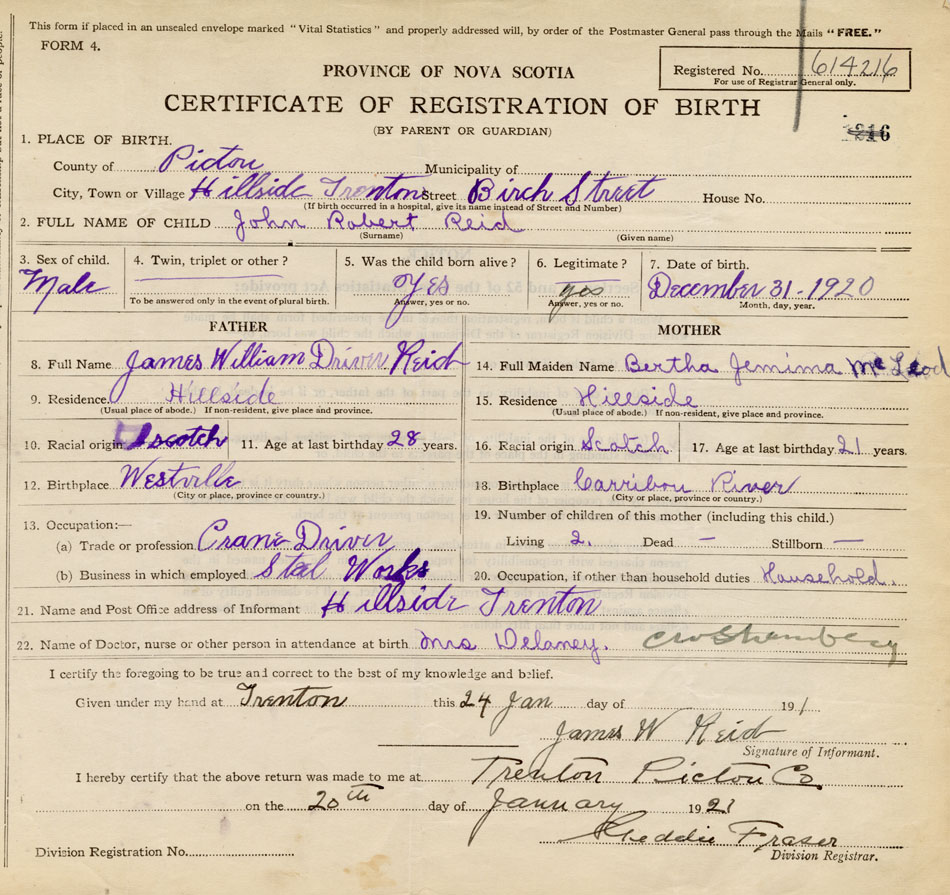 This form if placed in an unsealed envelope marked "Vital Statistics" and properly addressed will, by order of the Postmaster General pass through the Mails "FREE."
FORM 4.
PROVINCE OF NOVA SCOTIA
Registered No. 614216
For use of Registrar General only.
CERTIFICATE OF REGISTRATION OF BIRTH
(BY PARENT OR GUARDIAN)
1216
1. PLACE OF BIRTH.
County of Pictou Municipality of
City, Town or Village Hillside Trenton Street Birch Street House No.
(If birth occurred in a hospital, give its name instead of Street and Number)
2. FULL NAME OF CHILD John Robert Reid
(Surname) (Given name)
3. Sex of child. 4. Twin, triplet or other? 5. Was the child born alive? 6. Legitimate? 7. Date of birth.
Male Yes yes December 31-1920
To be answered only in the event of plural birth. Answer, yes or no. Answer, yes or no. Month, day, year.
FATHER MOTHER
8. Full Name James William Driver Reid 14. Full Maiden Name Bertha Jemima McLeod
9. Residence Hillside 15. Residence Hillside
(Usual place of abode.) If non-resident, give place and province. (Usual place of abode.) If non-resident, give place and province.
10. Racial origin Scotch 11. Age at last birthday 28 years. 16. Racial origin Scotch 17. Age at last birthday 21 years.
12. Birthplace Westville 18. Birthplace Carribou River
(City or place, province or country.) (City or place, province or country.)
13. Occupation:— 19. Number of children of this mother (including this child.)
(a) Trade or profession Crane Driver Living 2. Dead — Stillborn —
(b) Business in which employed Steel Works 20. Occupation, if other than household duties Household.
21. Name and Post Office address of Informant Hillside Trenton
22. Name of Doctor, nurse or other person in attendance at birth Mrs Delaney.
I certify the foregoing to be true and correct to the best of my knowledge and belief.
Given under my hand at Trenton this 24 Jan day of 191
James W Reid
Signature of Informant.
I hereby certify that the above return was made to me at Trenton Pictou Co
on the 20th day of January 1921
Fraser
Division Registrar.
Division Registration No.